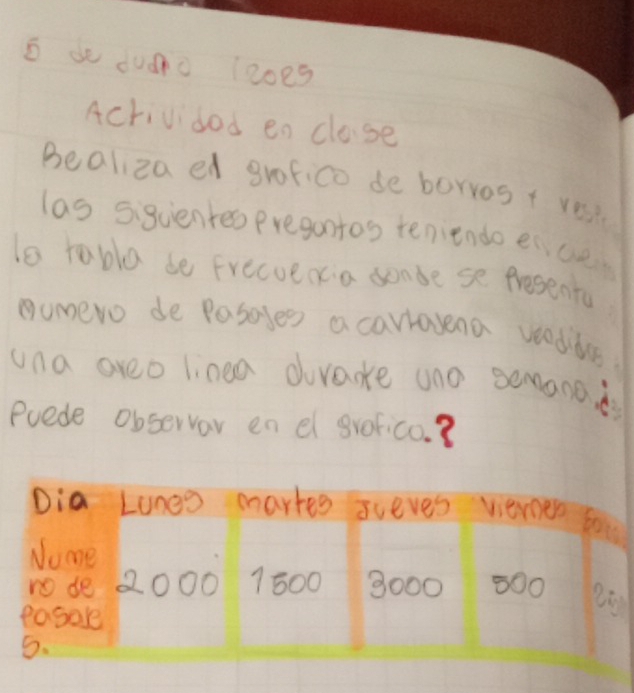 5 de Junio 2025
Actividad en clase
Realiza el grafico de barras y
las siguientes preguntas teniendo en
la tabla de Frecuencia donde se Presenta
numero de Pasajes a cartagena vendidos
una areo linea durante una semana. ¿
Puede observar en el grafico.?
Dia Lunes martes Jueves viernes
Nume
ro de 2000 1500 3000 500
Pasaje
s.